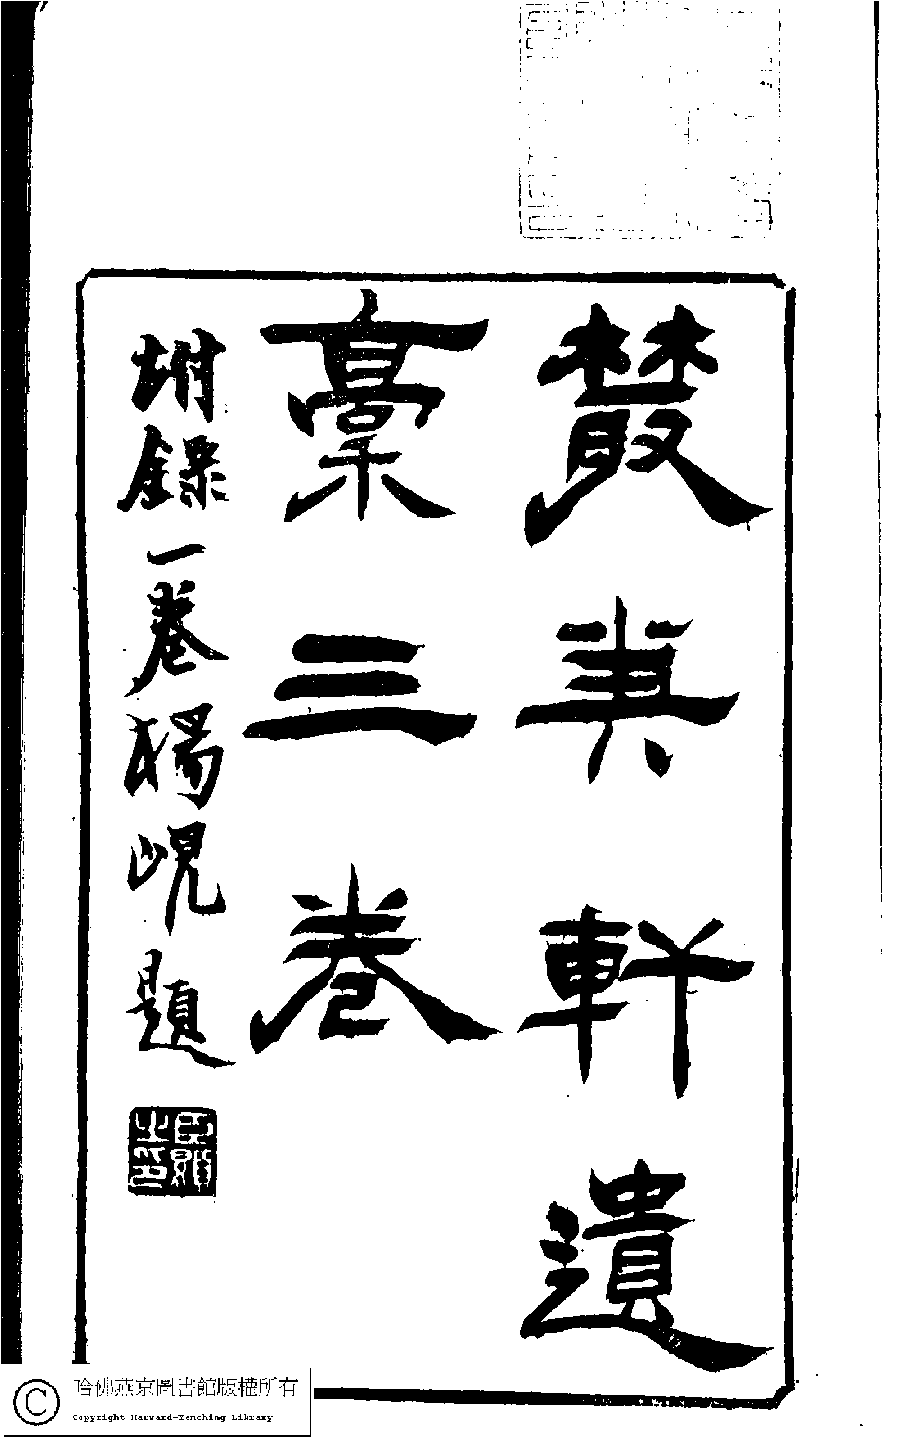 叢軒遺
稾三卷
坿錄一卷楊峴題
臣顯之印
哈佛燕京圖書館版權所有
Copyright Harvard-Yenching Library